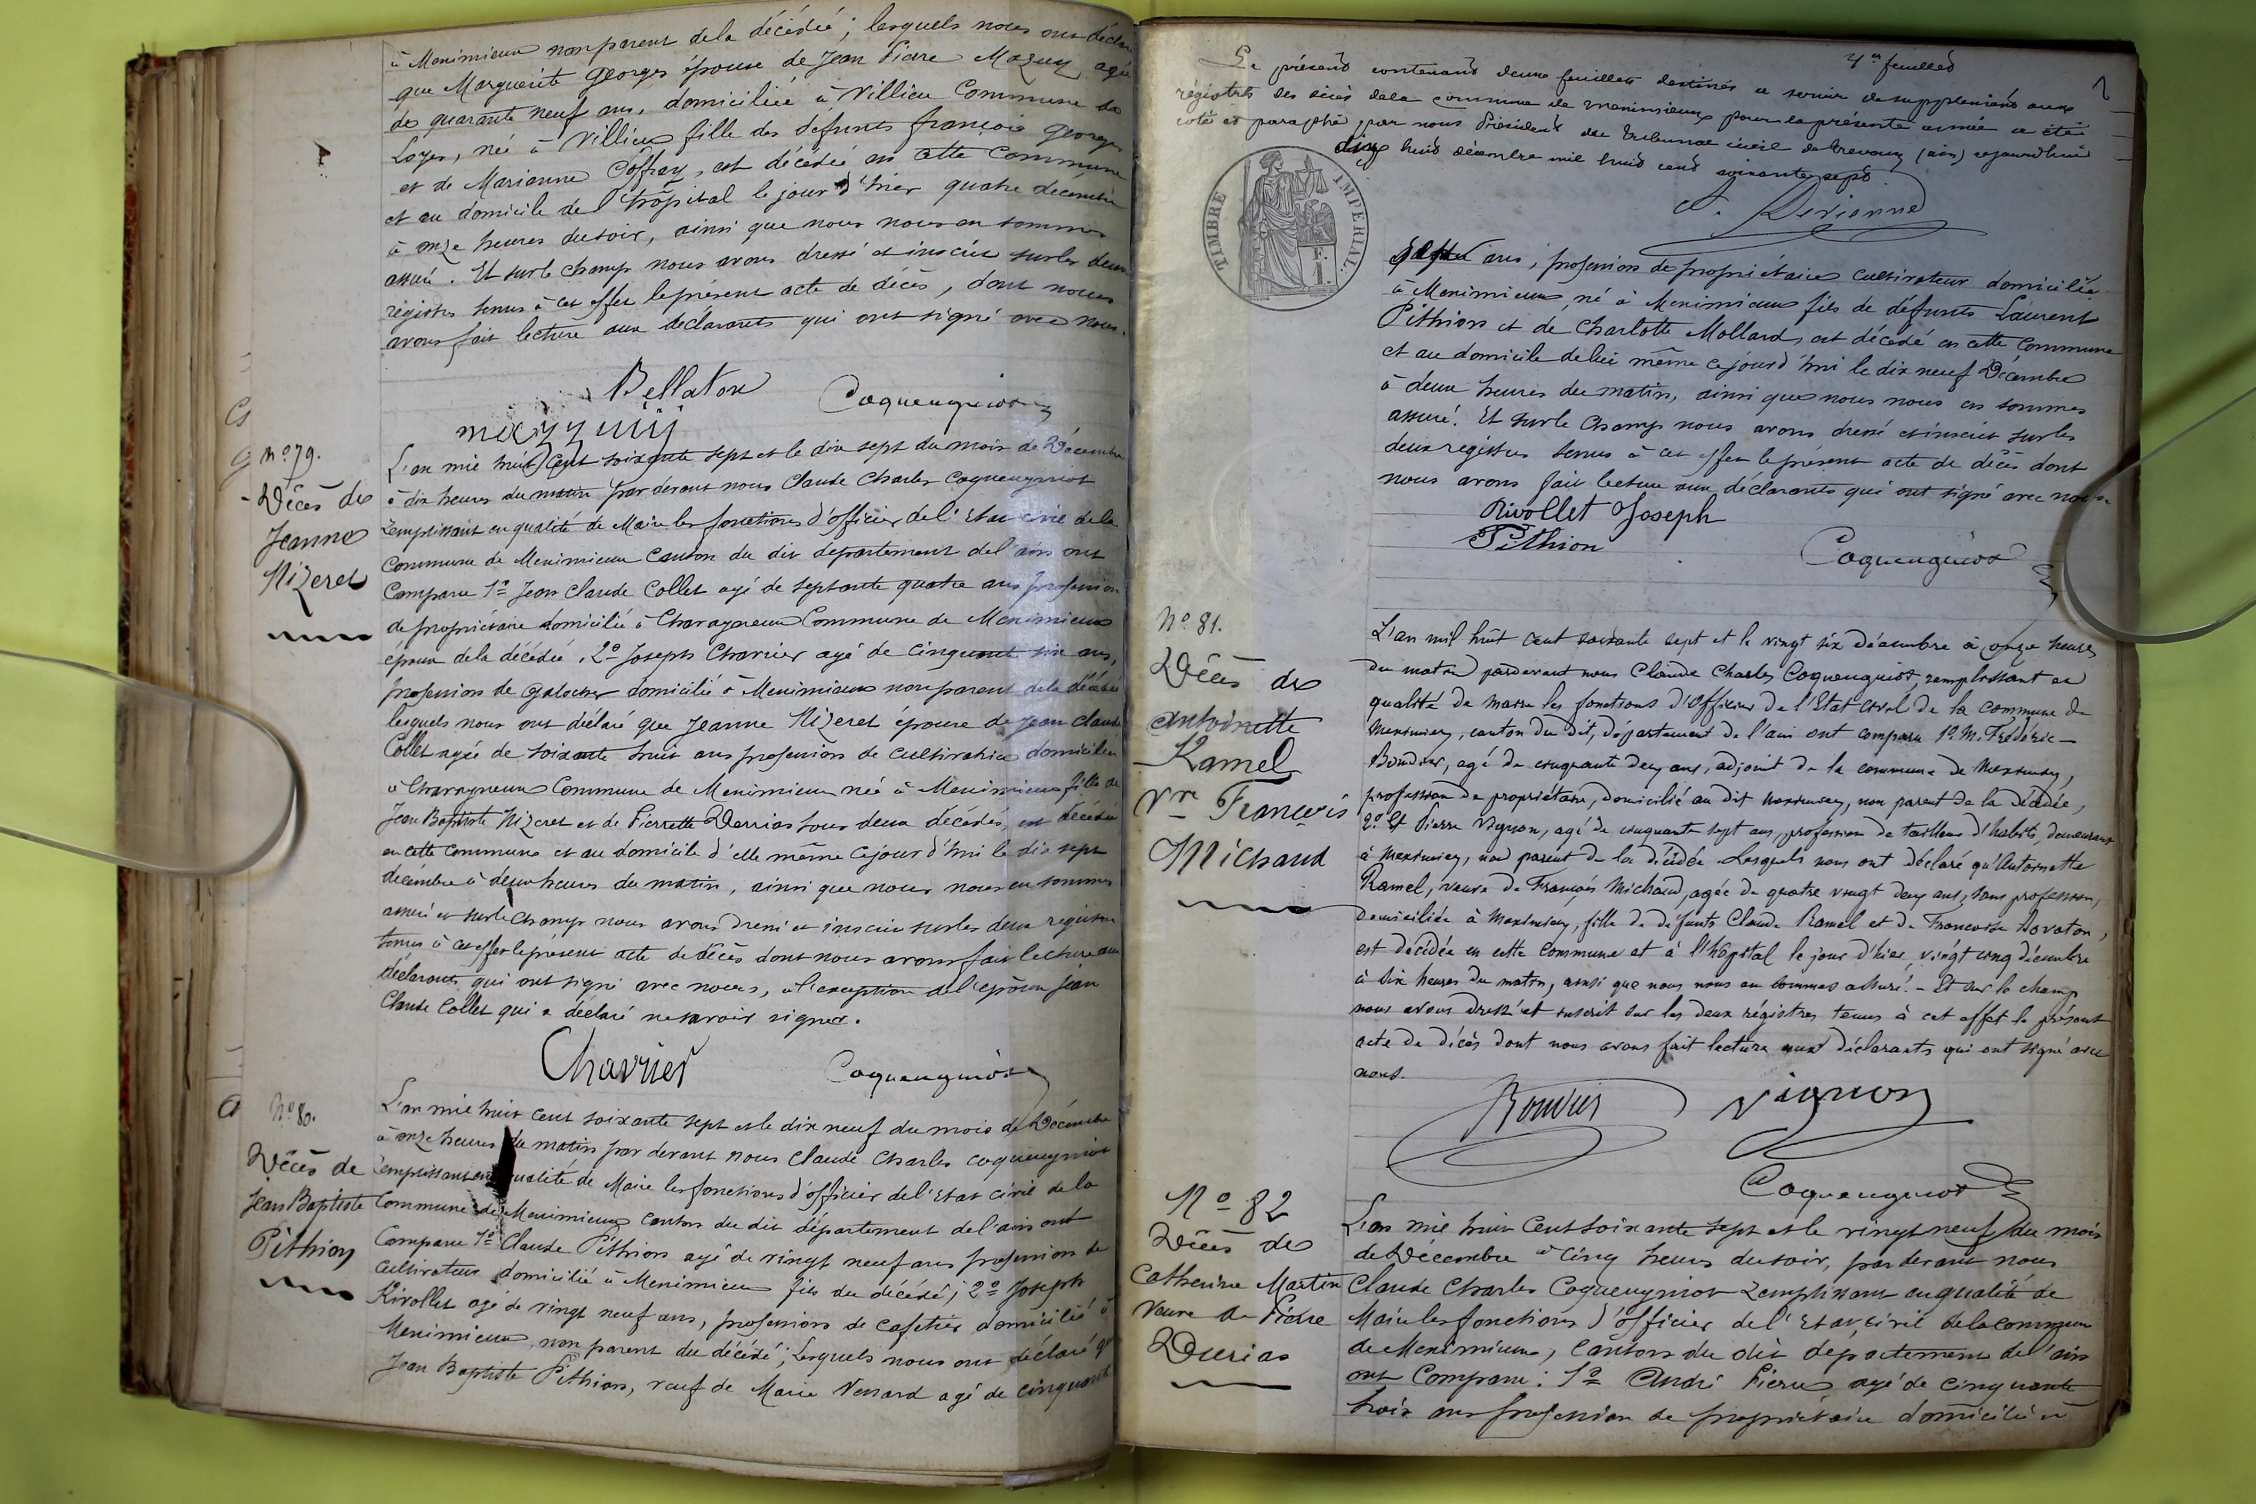 à Meximieux non parent de la décédée ; lesquels nous ont déclaré
que Marguerite Georges épouse de Jean Pierre Mazuy, agée
de quarante neuf ans, domiciliée à Villieu Commune de
Loyes, née à Villieu fille des défunts françois Georges
et de Marianne Coffray, est décédée en cette Commune
et au domicile de l'hôpital le jour d'hier quatre décembre
à onze heures du soir, ainsi que nous nous en sommes
assuré. Et sur le champ nous avons dressé et inscrit sur les deux
régistres tenus à cet effet le présent acte de décès, dont nous
avons fait lecture aux déclarants qui ont signé avec nous.
Bellaton Coqueugniot
mazzuiy
No 79.
Décès de
Jeanne
Nizeret
L'an mil huit Cent soixante sept et le dix sept du mois de Décembre
à dix heures du matin par devant nous Claude Charles Coqueugniot
remplissant en qualité de Maire les fonctions d'officier de l'Etat civil de la
Commune de Meximieux Canton du dit département de l'ain ont
Comparu 1o Jean Claude Collet agé de septante quatre ans profession
de propriétaire domicilié à Charagneux Commune de Meximieux
époux de la décédée, 2o Joseph Chavrier agé de cinquante six ans,
profession de galocher domicilié à Meximieux non parent de la décédée
lesquels nous ont déclaré que Jeanne Nizeret épouse de Jean Claude
Collet agée de soixante huit ans profession de cultivatrice domiciliée
à Charagneux Commune de Meximieux née à Meximieux fille de
Jean Baptiste Nizeret et de Pierrette Derrias tous deux décédés, est décédée
en cette commune et au domicile d'elle même Cejourd'hui le dix sept
décembre à deux heures du matin, ainsi que nous nous en sommes
assuré et sur le champ nous avons dressé et inscrit sur les deux registres
tenus à cet effet le présent acte de décès dont nous avons fait lecture aux
déclarants qui ont signé avec nous, à l'exception de l'époux Jean
Claude Collet qui a déclaré ne savoir signer.
Chavrier Coqueugniot
No 80.
Décès de
Jean Baptiste
Pithion
L'an mil huit cent soixante sept et le dix neuf du mois de Décembre
à onze heures du matin par devant nous Claude Charles Coqueugniot
remplissant en qualité de Maire les fonctions d'officier de l'Etat civil de la
Commune de Meximieux canton du dit département de l'ain ont
Comparu 1o Claude Pithion agé de vingt neuf ans profession de
cultivateur domicilié à Meximieux fils du décédé ; 2o Joseph
Rivollet agé de vingt neuf ans, profession de cafetier domicilié à
Meximieux non parent du décédé ; lesquels nous ont déclaré que
Jean Baptiste Pithion, veuf de Marie Venard agé de cinquante
1er feuillet
Le présent contenant deux feuillets destinés a servir de supplément aux
régistres des décès de la commune de meximieux pour la présente année a été
coté et paraphé par nous Président du tribunal civil de Trevoux (ain) cejourd'hui
dix huit décembre mil huit cent soixante sept
TIMBRE IMPERIAL
sept ans, profession de propriétaire cultivateur domicilié
à Meximieux né à Meximieux fils de défunts Laurent
Pithion et de Charlotte Mollard, est décédé en cette commune
et au domicile de lui même cejourd'hui le dix neuf Décembre
à deux heures du matin, ainsi que nous nous en sommes
assuré. Et sur le champ nous avons dressé et inscrit sur les
deux registres tenus à cet effet le présent acte de décès dont
nous avons fait lecture aux déclarants qui ont signé avec nous
Rivollet Joseph
Pithion Coqueugniot
No 81.
Décès de
Antoinette
Ramel
Vve François
Michaud
L'an mil huit cent soixante sept et le vingt six décembre à onze heures
du matin pardevant nous Claude Charles Coqueugniot, remplissant en
qualité de maire les fonctions d'Officier de l'Etat Civil de la Commune de
Meximieux, canton du dit, département de l'ain ont comparu 1o M. Frédéric
Bouvier, agé de cinquante deux ans, adjoint de la commune de Meximieux,
profession de propriétaire, domicilié au dit Meximieux, non parent de la décédée,
2o Et Pierre Vignon, agé de cinquante sept ans, profession de tailleur d'habits, demeurant
à Meximieux, non parent de la décédée. Lesquels nous ont déclaré qu'Antoinette
Ramel, veuve de François Michaud, agée de quatre vingt deux ans, sans profession,
domiciliée à Meximieux, fille de défunts Claude Ramel et de Françoise
est décédée en cette Commune et à l'hôpital le jour d'hier, vingt cinq décembre
à six heures du matin, ainsi que nous nous en sommes assuré. - Et sur le champ
nous avons dressé et inscrit sur les deux régistres tenus à cet effet le présent
acte de décès dont nous avons fait lecture aux déclarants qui ont signé avec
nous.
Bouvier Vignon
Coqueugniot
No 82
Décès de
Catherine Martin
Veuve de Pierre
Durias
L'an mil huit Cent soixante sept et le vingt neuf du mois
de Décembre à cinq heures du soir, par devant nous
Claude Charles Coqueugniot remplissant en qualité de
Maire les fonctions d'officier de l'Etat civil de la commune
de Meximieux, Canton du dit département de l'ain
ont Comparu : 1o André Pierre, agé de cinquante
trois ans profession de propriétaire domicilié à